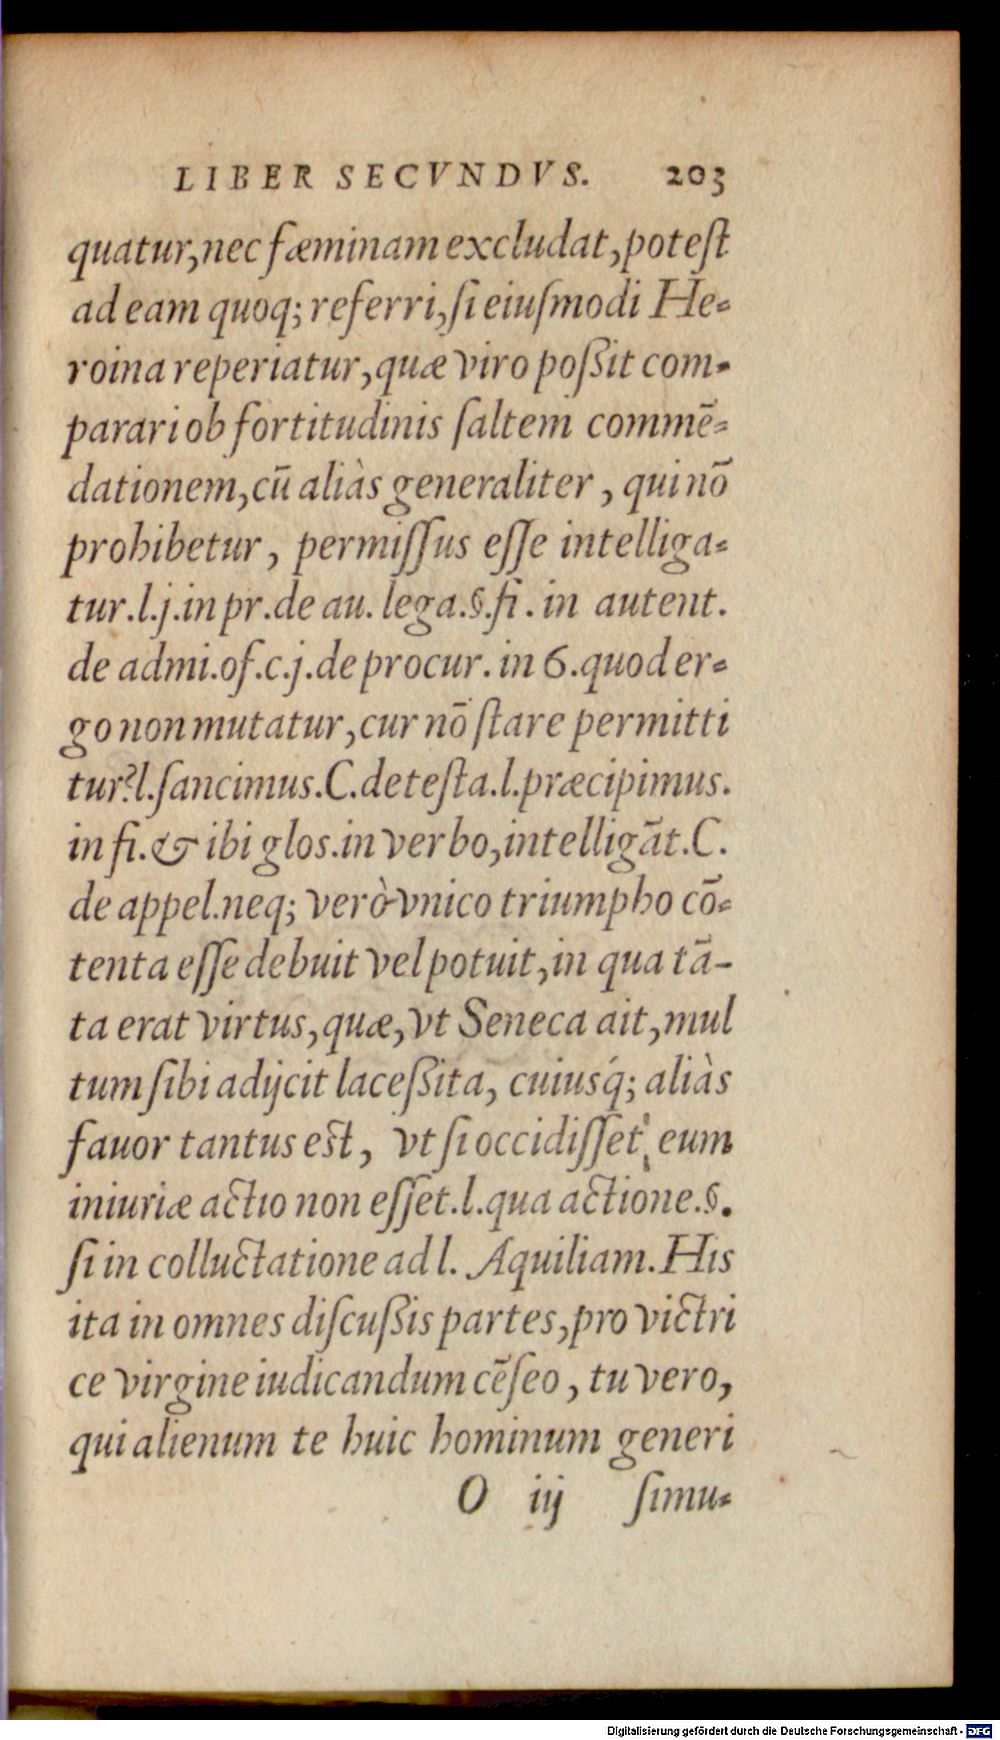 LIBER SECVNDVS. 203
quatur, nec fæminam excludat, potest
ad eam quoq; referri, si eiuſmodi He-
roina reperiatur, quæ viro poßit com-
parari ob fortitudinis ſaltem commē-
dationem, cū aliàs generaliter, qui nō
prohibetur, permiſſus eſſe intelliga-
tur. l. j. in pr. de au. lega. §. fi. in autent.
de admi. of. c. j. de procur. in 6. quod er-
go non mutatur, cur nō ſtare permitti
tur? l. ſancimus. C. de teſta. l. præcipimus.
in fi. & ibi glos. in verbo, intelligāt. C.
de appel. neq; verò vnico triumpho cō-
tenta eſſe debuit vel potuit, in qua tā-
ta erat virtus, quæ, vt Seneca ait, mul
tum ſibi adijcit laceßita, cuiusq́; aliàs
fauor tantus est, vt ſi occidiſſet eum
iniuriæ actio non eſſet. l. qua actione. §.
ſi in colluctatione ad l. Aquiliam. His
ita in omnes diſcußis partes, pro victri
ce virgine iudicandum cēſeo, tu vero,
qui alienum te huic hominum generi
O iij ſimu-
Digitalisierung gefördert durch die Deutsche Forschungsgemeinschaft - DFG